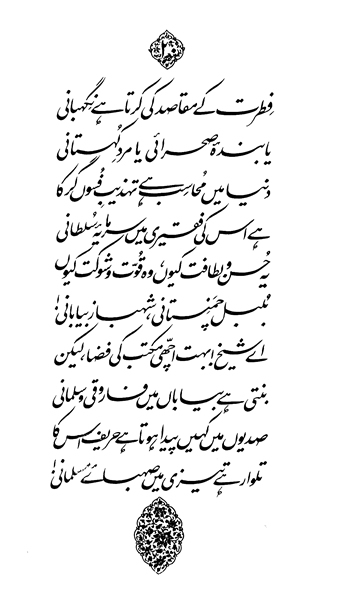 فِطرت کے مقاصد کی کرتا ہے نِگہبانی
یا بندۂ صحرائی یا مردِ کُہستانی
دنیا میں مُحاسِب ہے تہذیبِ فُسوں گر کا
ہے اس کی فقیری میں سرمایۂ سُلطانی
یہ حُسن و لطافت کیوں، وہ قُوّت و شوکت کیوں
بُلبل چَمَنِستانی، شہباز بیابانی!
اے شیخ! بہت اچھّی مکتب کی فضا، لیکن
بنتی ہے بیاباں میں فاروقی و سلمانی
صدیوں میں کہیں پیدا ہوتا ہے حریف اس کا
تلوار ہے تیزی میں صہبائے مُسلمانی!